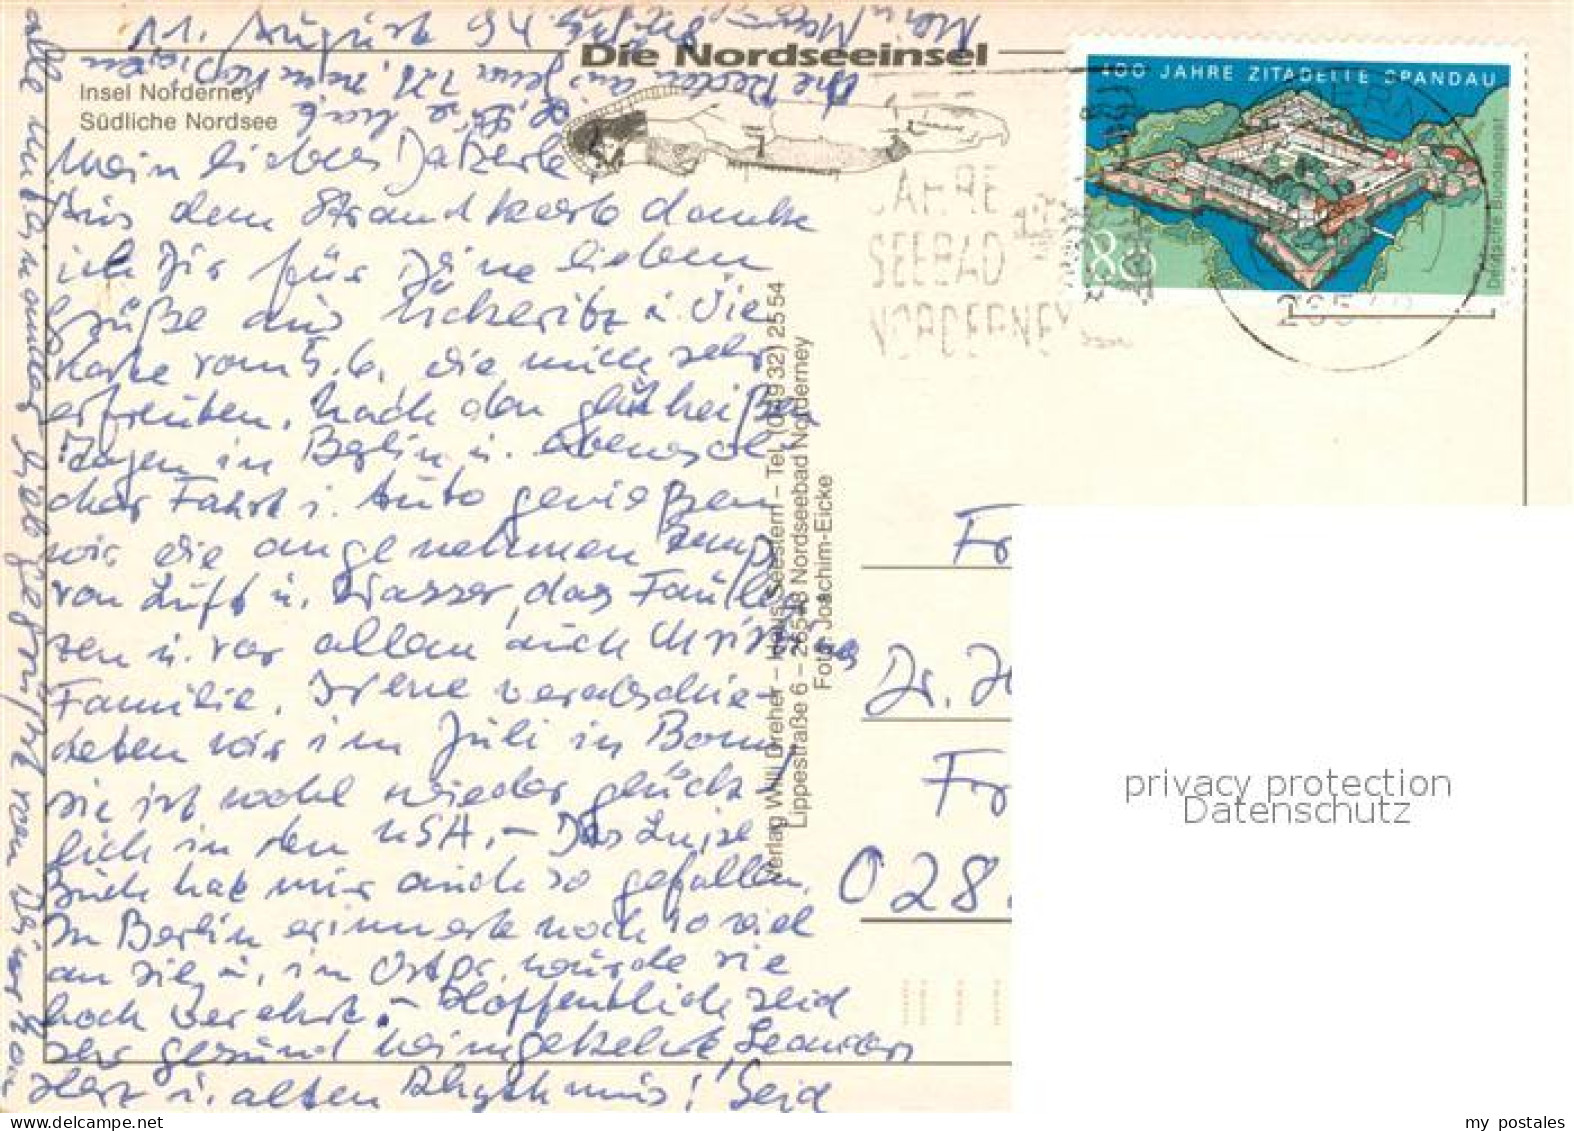 11. August 94
Die Nordseeinsel
Insel Norderney
Südliche Nordsee
400 JAHRE ZITADELLE SPANDAU
Deutsche Bundespost
80
JAHRE
SEEBAD
NORDERNEY
26548
Mein liebes
Aus dem Strandkorb danke
ich Dir für Deine lieben
Grüße aus Ückeritz u. die
Karte vom 5.6. die mich sehr
erfreuten. Nach den glühheißen
Tagen in Berlin u. ebensol-
cher Fahrt i. Auto genießen
wir die angenehmen Temp.
von Luft u. Wasser, das Faullen-
zen u. vor allem auch Christinas
Familie. Irene verabschie-
deten wir im Juli in Bonn,
sie ist wohl wieder glück-
lich in den USA. – Das Luise
Buch hat mir auch so gefallen.
In Berlin erinnerte noch so viel
an sie u. in Ostpr. wurde sie
hoch verehrt. – Hoffentlich seid
Ihr gesund heimgekehrt,
Herz u. alten Rhythmus! Seid
alle umarmt u. lieb gegrüßt von
Verlag Willi Dreher – Haus Seestern – Tel. (0 49 32) 25 54
Lippestraße 6 – 26548 Nordseebad Norderney
Foto: Joachim-Eicke
Fr
Dr. H
Fr
028
privacy protection
Datenschutz
my postales